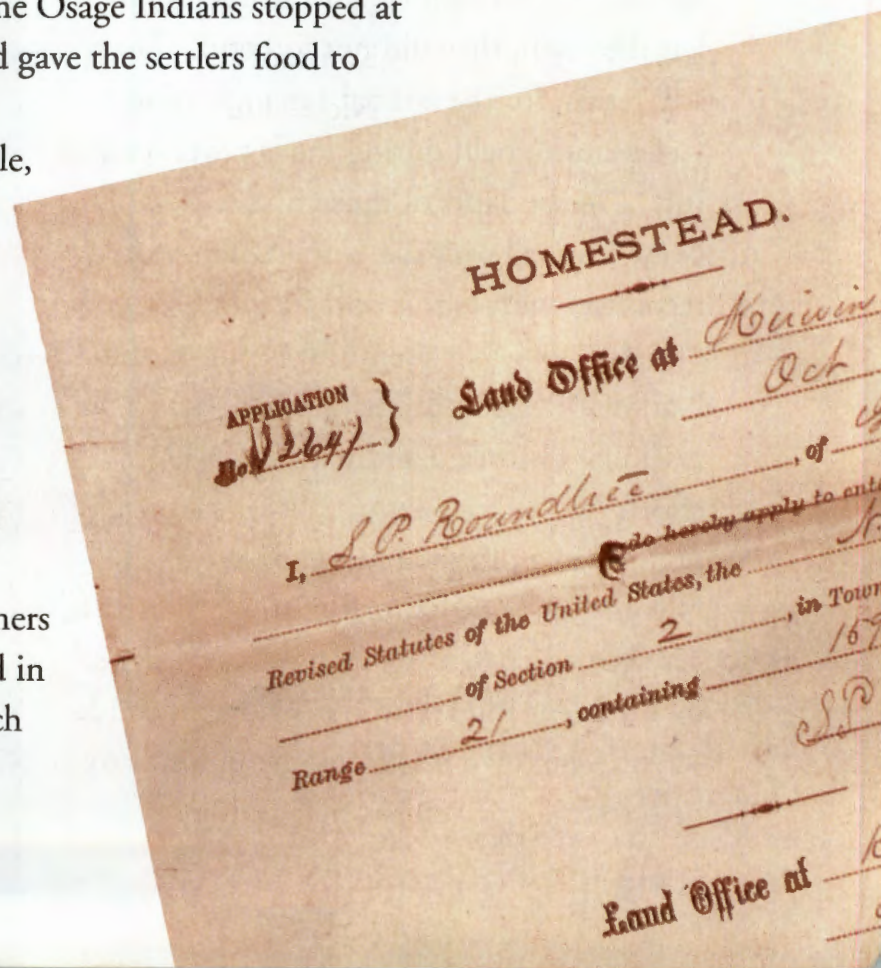 ne Osage Indians stopped at
d gave the settlers food to
le,
HOMESTEAD.
APPLICATION
No. 12641
} Land Office at Kirwin
Oct
I, S. P. Roundtree , of
do hereby apply to ente
Revised Statutes of the United States, the
of Section 2 , in Town
Range 21 , containing 159
S P
Land Office at
ners
d in
ch